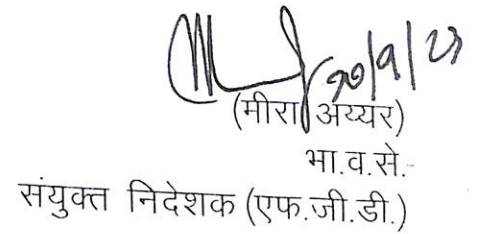 (मीरा अय्यर)
भा.व.से.
संयुक्त निदेशक (एफ.जी.डी.)